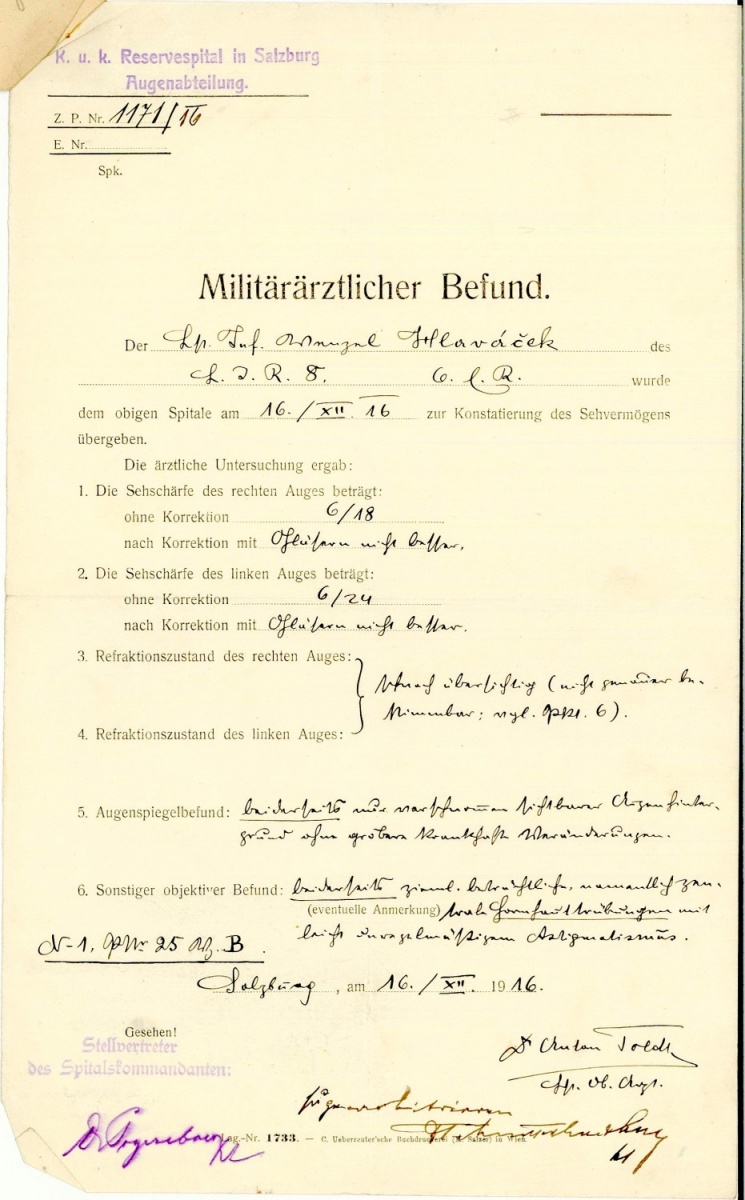 K. u. k. Reservespital in Salzburg
Augenabteilung.
Z. P. Nr. 1171/16
E. Nr.
Spk.
Militärärztlicher Befund.
Der Lst. Inf. Wenzel Hlaváček des
L. I. R. 8. 6. C. R. wurde
dem obigen Spitale am 16./XII. 16 zur Konstatierung des Sehvermögens
übergeben.
Die ärztliche Untersuchung ergab:
1. Die Sehschärfe des rechten Auges beträgt:
ohne Korrektion 6/18
nach Korrektion mit Gläsern nicht besser.
2. Die Sehschärfe des linken Auges beträgt:
ohne Korrektion 6/24
nach Korrektion mit Gläsern nicht besser.
3. Refraktionszustand des rechten Auges:
schwach übersichtig (nicht genauer be-
stimmbar; vgl. Pkt. 6).
4. Refraktionszustand des linken Auges:
5. Augenspiegelbefund: beiderseits nur verschwommen sichtbarer Augenhinter-
grund ohne gröbere krankhafte Veränderungen.
6. Sonstiger objektiver Befund: beiderseits zieml. beträchtliche, namentlich zen-
(eventuelle Anmerkung) trale Hornhauttrübungen mit
leicht unregelmäßigem Astigmatismus.
N-1, 25 B.
Salzburg, am 16./XII. 1916.
Gesehen!
Stellvertreter
des Spitalskommandanten:
Dr Anton Toldt
Lag.-Nr. 1733. — C. Ueberreuter'sche Buchdruckerei (M. Salzer) in Wien.